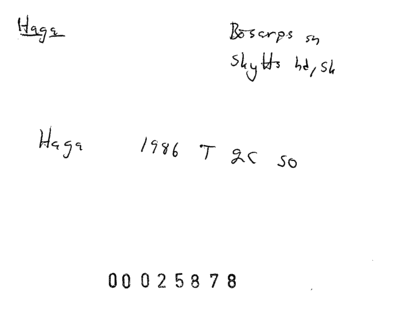 Haga
Bosarps sn
Skytts hd, Sk
Haga 1986 T 2C SO
00025878